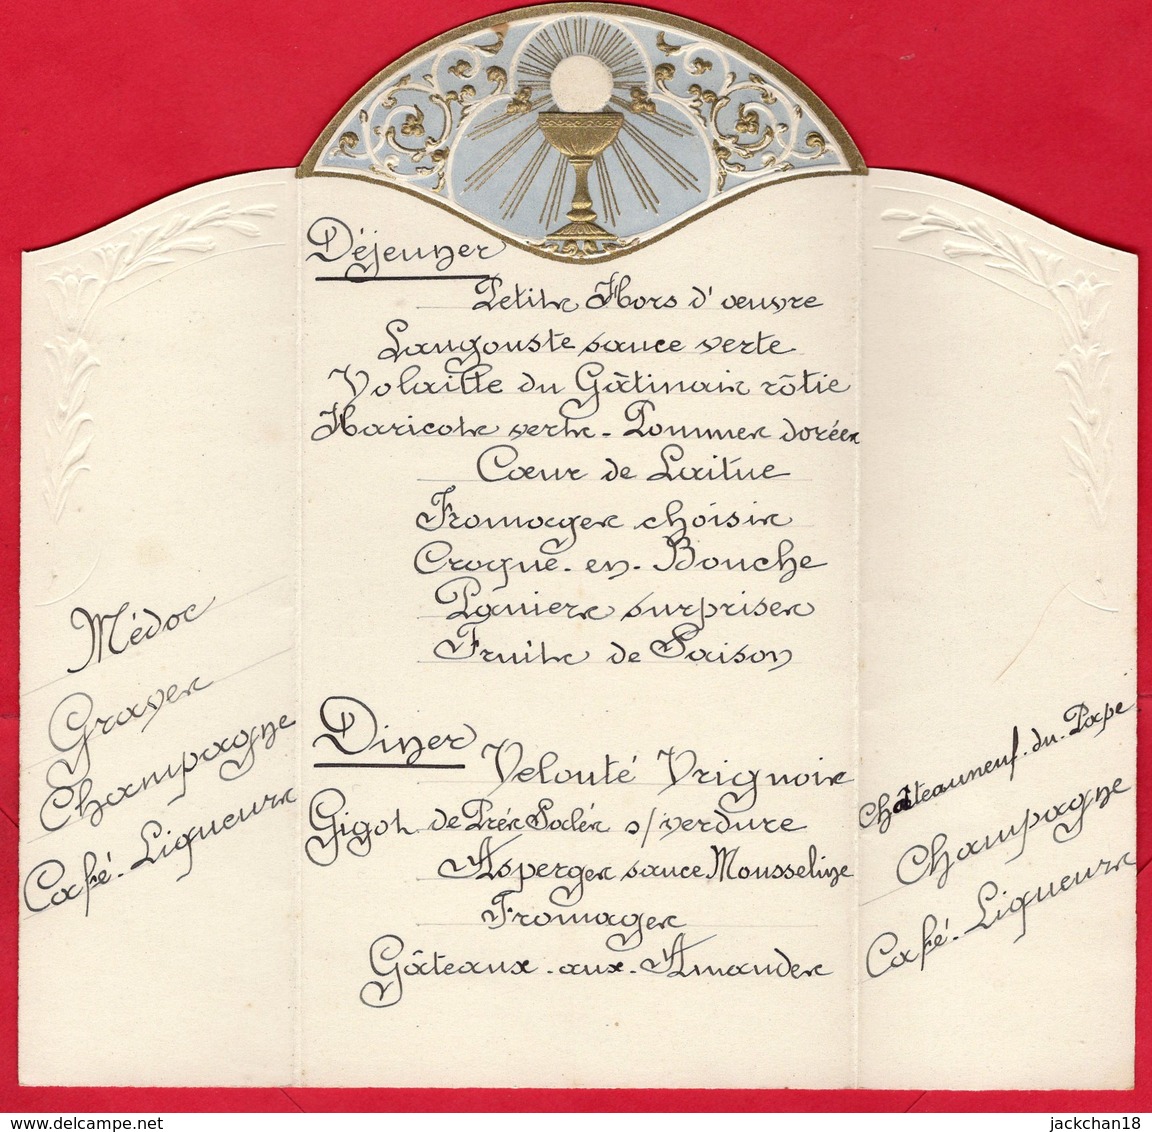 Déjeuner
Petits Hors d'œuvre
Langouste sauce verte
Volaille du Gâtinais rôtie
Haricots verts - Pommes dorées
Cœur de Laitue
Fromages choisis
Croque-en-Bouche
Paniers surprises
Fruits de Saison
Diner
Velouté Vrignois
Gigot de Prés Salés s/verdure
Asperges sauce Mousseline
Fromages
Gâteaux-aux-Amandes
Médoc
Graves
Champagne
Café-Liqueurs
Châteauneuf-du-Pape
Champagne
Café-Liqueurs
www.delcampe.net
jackchan18